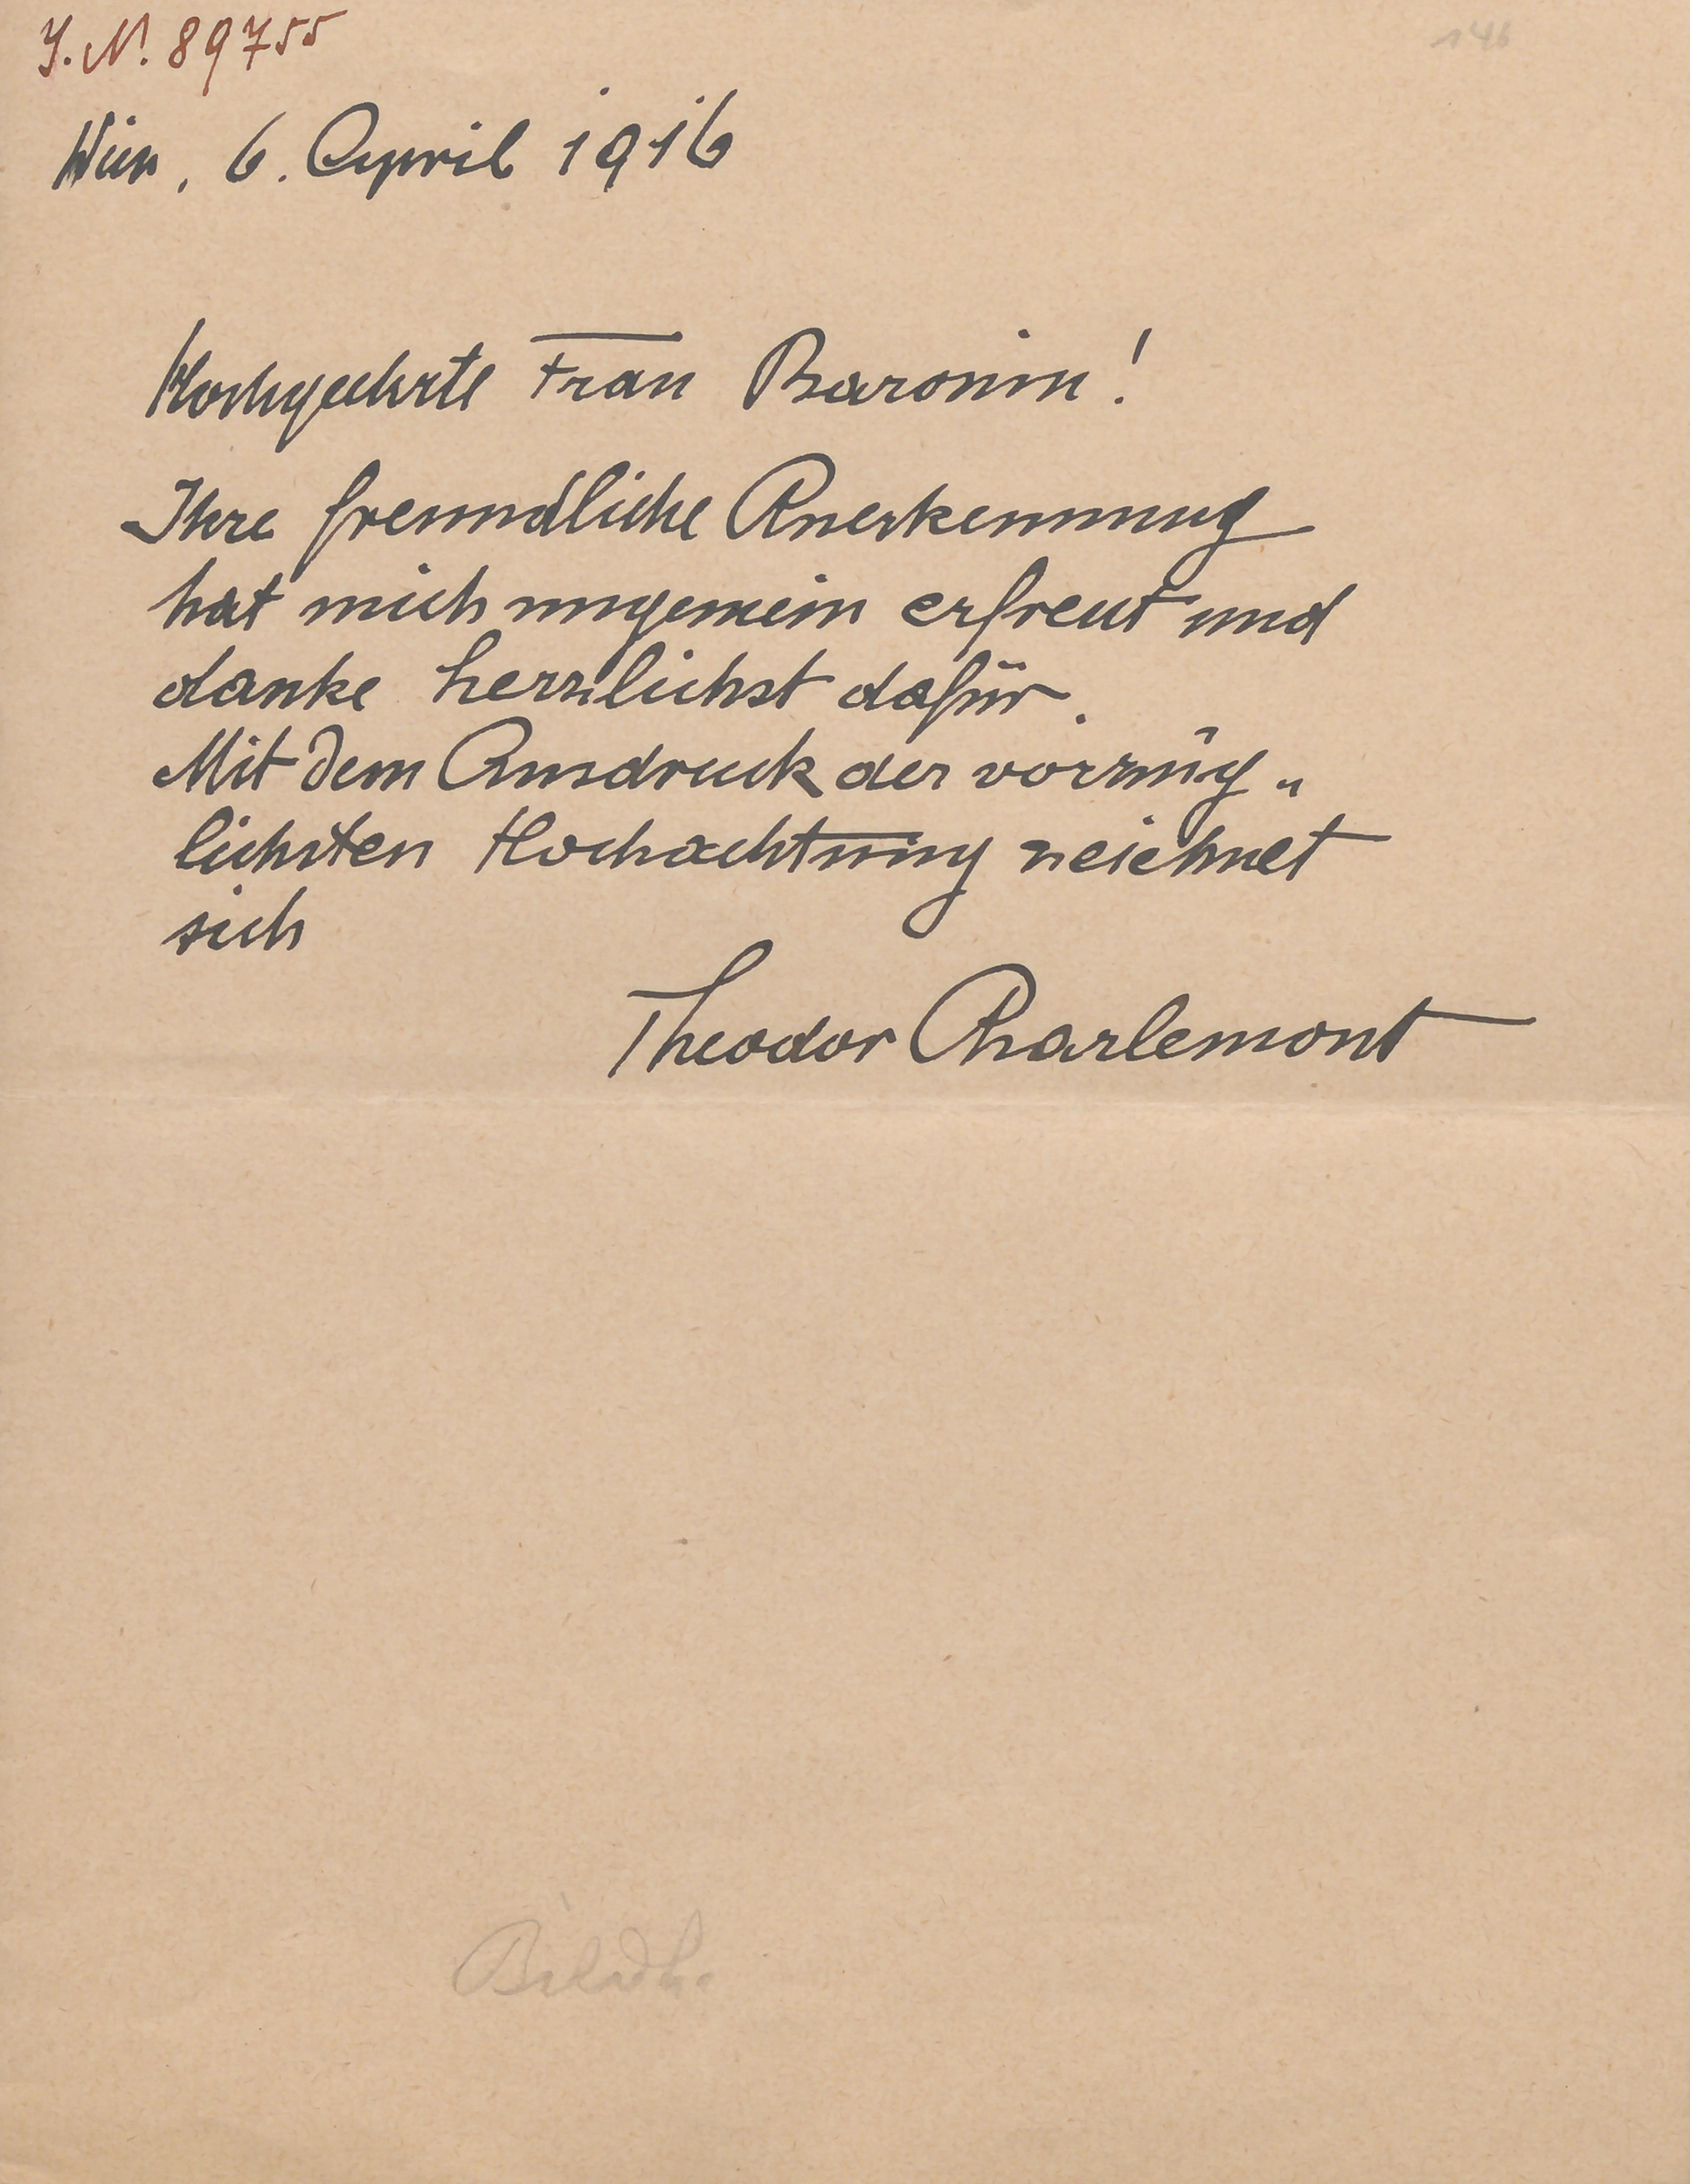 J. N. 89755
146
Wien, 6. April 1916
Hochgeehrte Frau Baronin!
Ihre freundliche Anerkennung
hat mich ungemein erfreut und
danke herzlichst dafür.
Mit dem Ausdruck der vorzüg„
lichsten Hochachtung zeichnet
sich
Theodor Charlemont
Bildh.